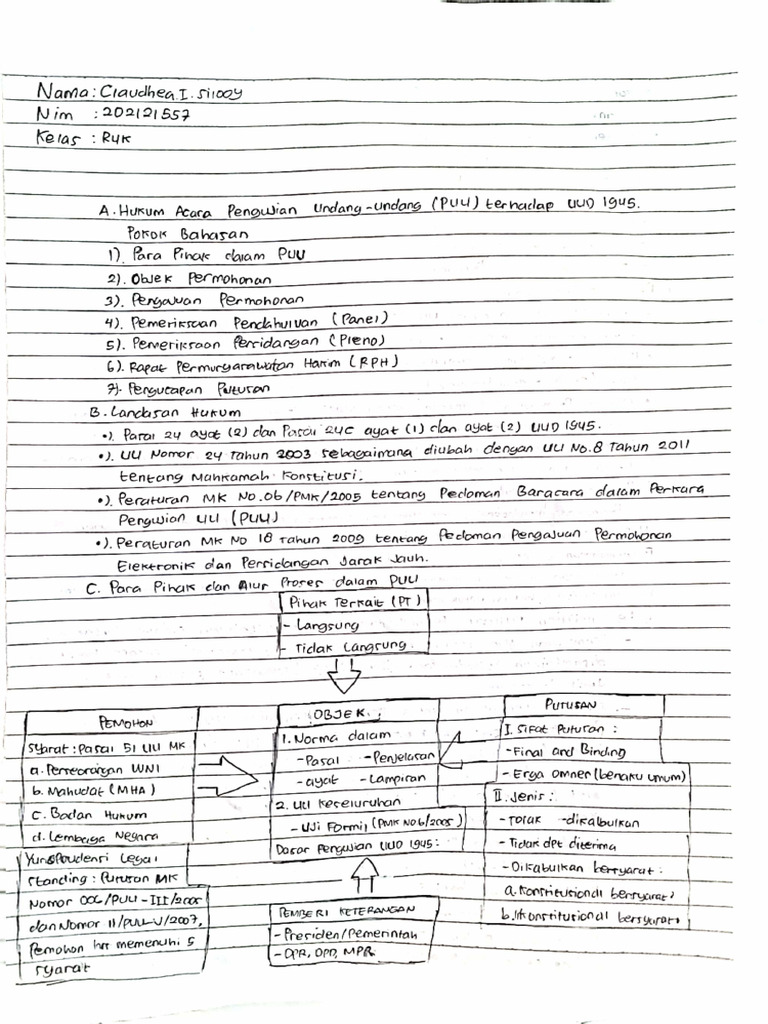 Nama : Claudhea. I. Silooy
Nim : 202121557
Kelas : R4K
A. Hukum Acara Pengujian Undang-undang (PUU) terhadap UUD 1945.
Pokok Bahasan
1). Para Pihak dalam PUU
2). Objek Permohonan
3). Pengajuan Permohonan
4). Pemeriksaan Pendahuluan (Panel)
5). Pemeriksaan Persidangan (Pleno)
6). Rapat Permusyarawatan Hakim (RPH)
7). Pengucapan Putusan
B. Landasan Hukum
•). Pasal 24 ayat (2) dan Pasal 24C ayat (1) dan ayat (2) UUD 1945.
•). UU Nomor 24 Tahun 2003 sebagaimana diubah dengan UU No. 8 Tahun 2011
tentang Mahkamah Konstitusi.
•). Peraturan MK No. 06/PMK/2005 tentang Pedoman Baracara dalam Perkara
Pengujian UU (PUU)
•). Peraturan MK No 18 Tahun 2009 tentang Pedoman Pengajuan Permohonan
Elektronik dan Persidangan Jarak Jauh.
C. Para Pihak dan Alur Proses dalam PUU
Pihak Terkait (PT)
- Langsung
- Tidak Langsung
PEMOHON
Syarat : Pasal 51 UU MK
a. Perseorangan WNI
b. Mahudat (MHA)
c. Badan Hukum
d. Lembaga Negara
Yurisprudensi Legal
Standing : Putusan MK
Nomor 006/PUU-III/2005
dan Nomor 11/PUU-V/2007,
Pemohon hrs memenuhi 5
syarat
OBJEK :
1. Norma dalam
- Pasal - Penjelasan
- ayat - Lampiran
2. UU Keseluruhan
- Uji Formil (PMK No 6/2005)
Dasar Pengujian UUD 1945 :
PEMBERI KETERANGAN
- Presiden/Pemerintah
- DPR, DPD, MPR
PUTUSAN
I. Sifat Putusan :
- Final and Binding
- Erga omnes (berlaku umum)
II. Jenis :
- Tolak - dikabulkan
- Tidak dpt diterima
- Dikabulkan bersyarat :
a. Konstitusional bersyarat
b. Inkonstitusional bersyarat